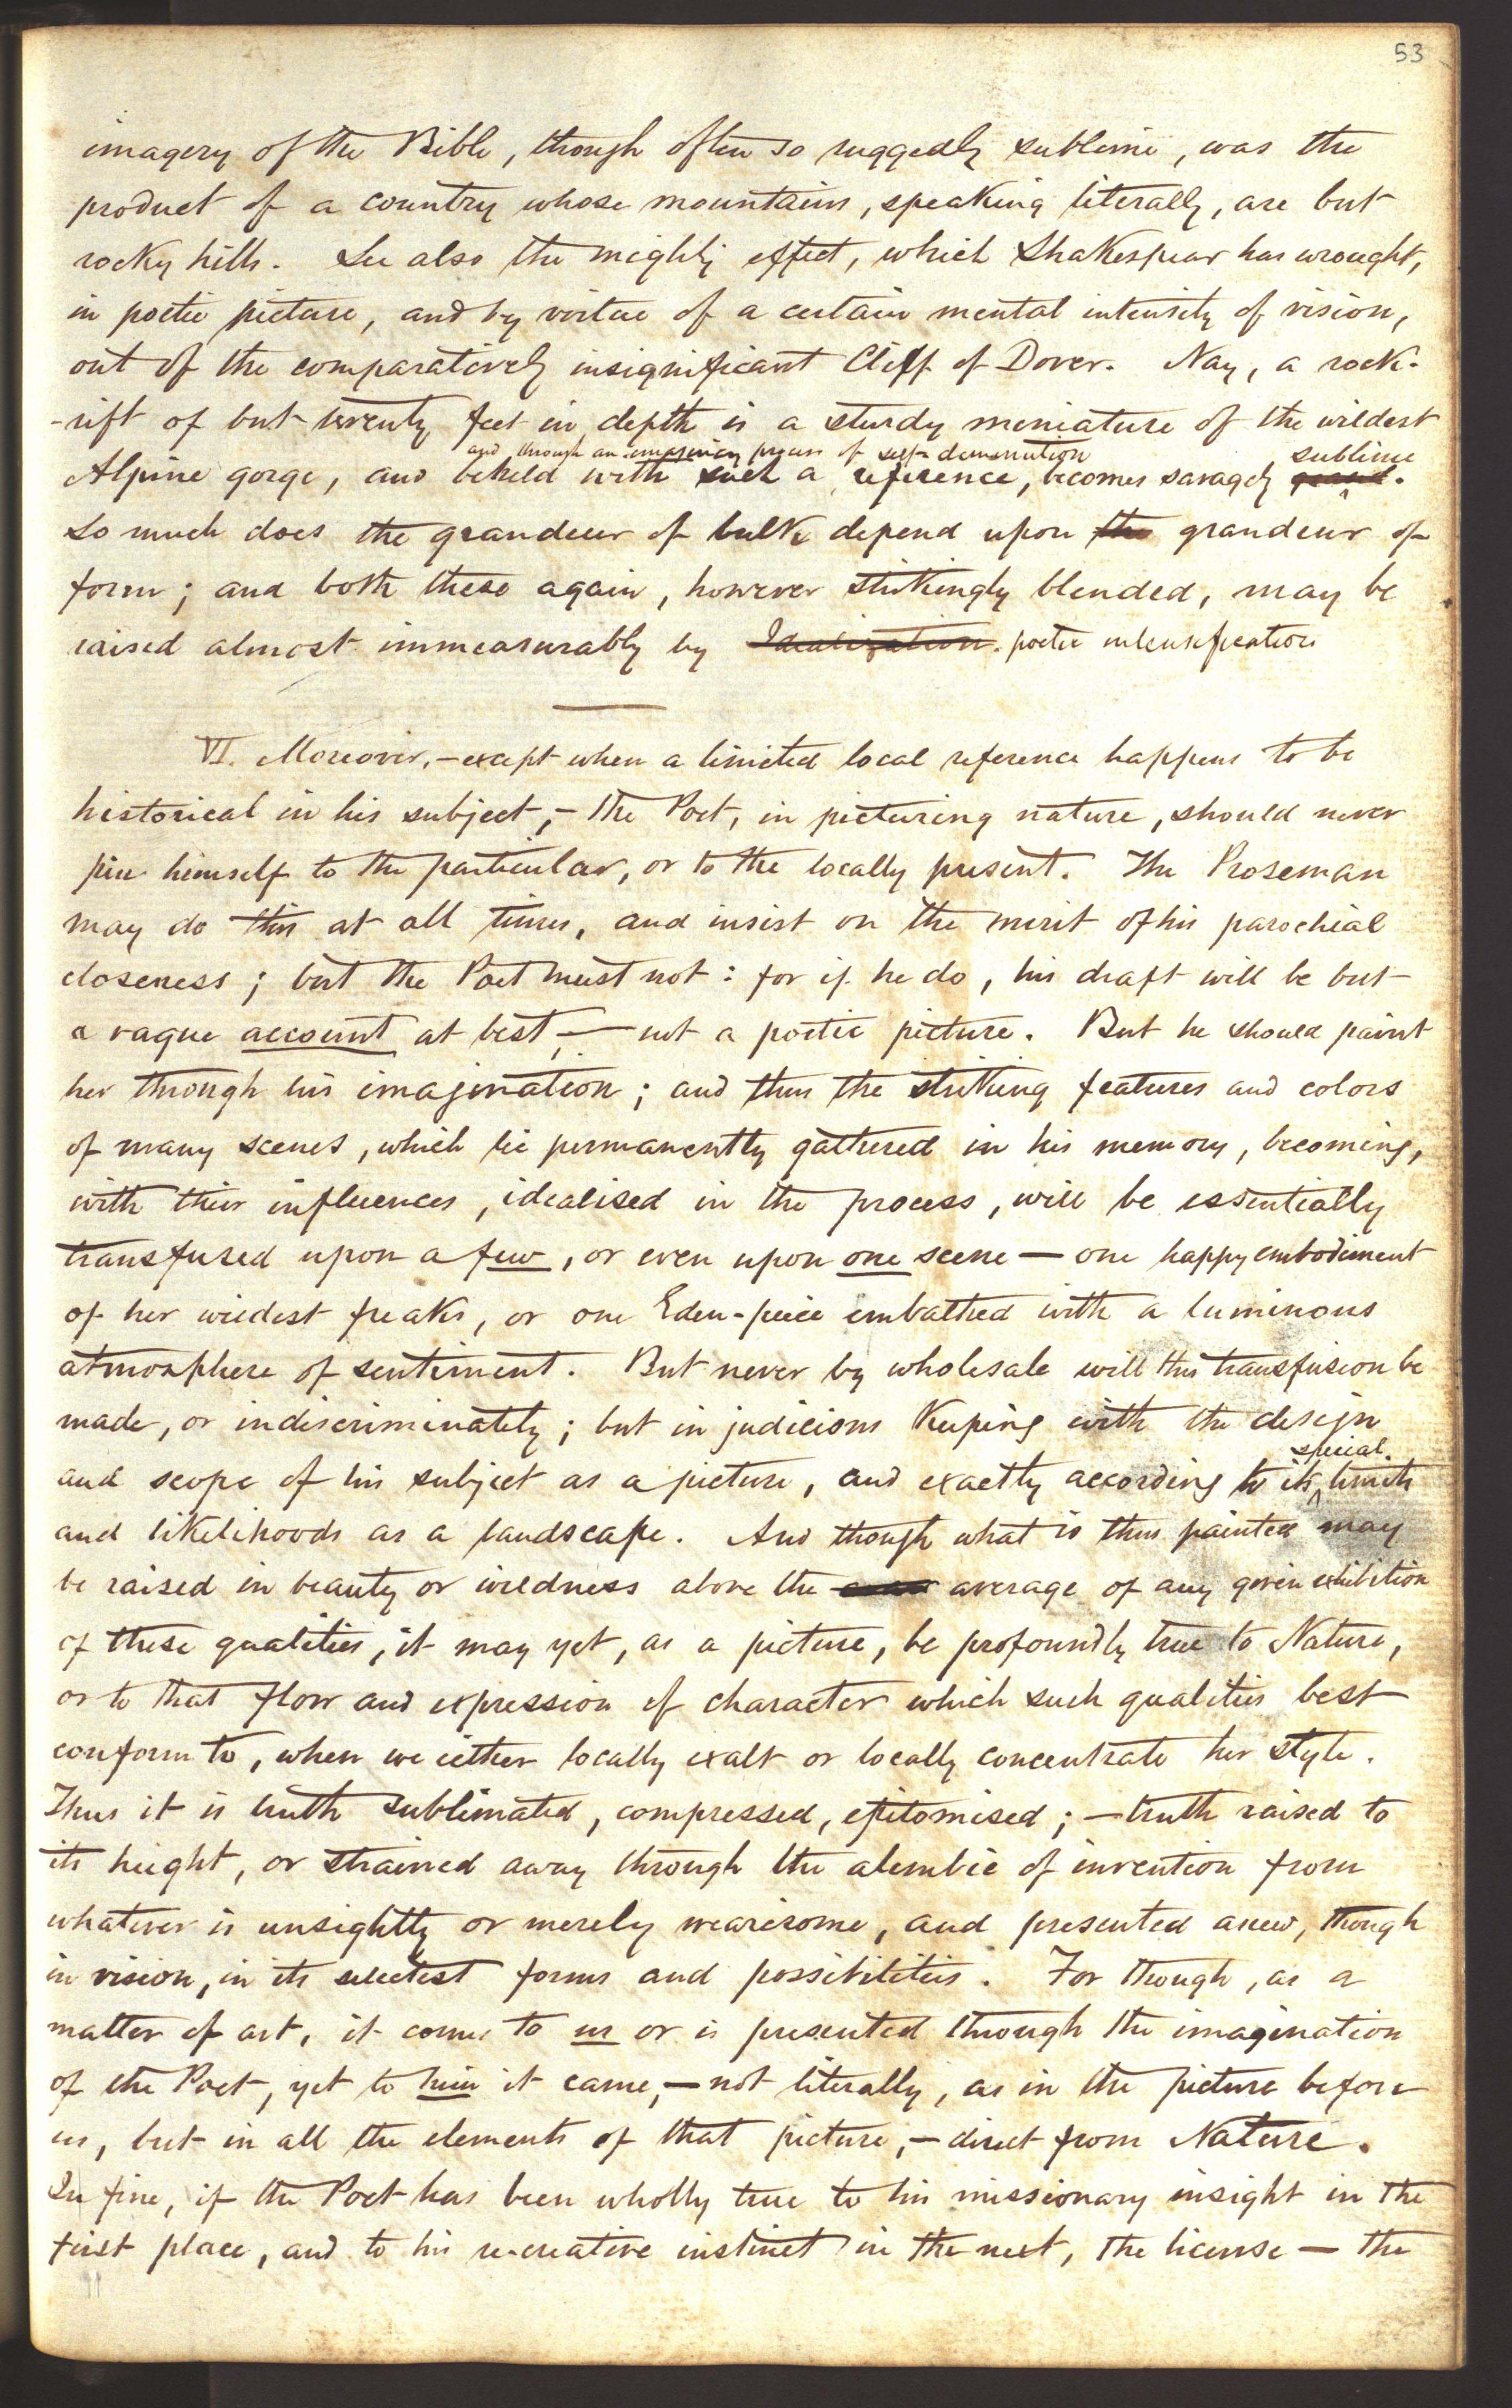 53
imagery of the Bible, though often so ruggedly sublime, was the
product of a country whose mountains, speaking literally, are but
rocky hills. See also the mighty effect, which Shakespear has wrought,
in poetic picture, and by virtue of a certain mental intensity of vision,
out of the comparatively insignificant Cliff of Dover. Nay, a rock-
-rift of but twenty feet in depth is a sturdy meniature of the wildest
and through an imaginary process of self-diminution sublime
Alpine gorge, and beheld with such a reference, becomes savagely grand.
So much does the grandeur of bulk depend upon the grandeur of
form; and both these again, however strikingly blended, may be
raised almost immeasurably by Idealization. poetic intensification
VI. Moreover,—except when a limited local reference happens to be
historical in his subject,—the Poet, in picturing nature, should never
pin himself to the particular, or to the locally present. The Proseman
may do this at all times, and insist on the merit of his parochial
closeness; but the Poet must not: for if he do, his draft will be but
a vague account at best,—not a poetic picture. But he should paint
her through his imagination; and thus the striking features and colors
of many scenes, which lie permanently gathered in his memory, becoming,
with their influences, idealised in the process, will be essentially
transfused upon a few, or even upon one scene—one happy embodiment
of her wildest freaks, or one Eden-peice embathed with a luminous
atmosphere of sentiment. But never by wholesale will this transfusion be
made, or indiscriminately; but in judicious keeping with the design
special
and scope of his subject as a picture, and exactly according to its limits
and likelihoods as a landscape. And though what is thus painted may
be raised in beauty or wildness above the average of any given exhibition
of these qualities, it may yet, as a picture, be profoundly true to Nature,
or to that flow and expression of character which such qualities best
conform to, when we either locally exalt or locally concentrate her style.
Thus it is truth sublimated, compressed, epitomised;—truth raised to
its height, or strained away through the alembic of invention from
whatever is unsightly or merely wearisome, and presented anew, though
in vision, in its selectest forms and possibilities. For though, as a
matter of art, it comes to us or is presented through the imagination
of the Poet, yet to him it came,—not literally, as in the picture before
us, but in all the elements of that picture,—direct from Nature.
In fine, if the Poet has been wholly true to his missionary insight in the
first place, and to his re-creative instinct in the next, the license—the